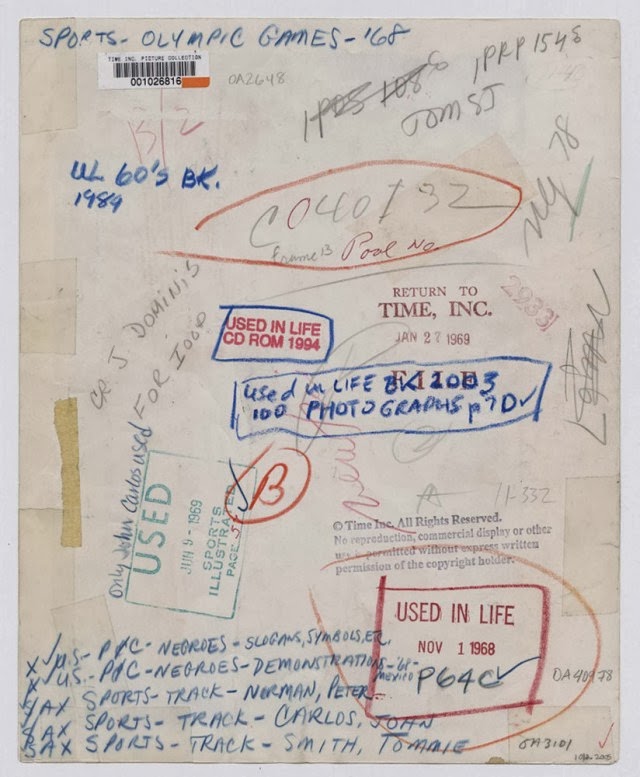 SPORTS - OLYMPIC GAMES - '68
TIME INC. PICTURE COLLECTION
001026816
OA2648
1PRP1548
B/2
UL 60'S BK.
1989
78
C040132
Frame 13 Pool No
CR J DOMINIS
FOR 100P
RETURN TO
TIME, INC.
JAN 27 1969
FILE
2933
USED IN LIFE
CD ROM 1994
Used in LIFE BK 2003
100 PHOTOGRAPHS p 7D
Only John Carlos used
USED
JUN 9 - 1969
SPORTS
ILLUSTRATED
PAGE
B
A
11-332
© Time Inc. All Rights Reserved.
No reproduction, commercial display or other
use is permitted without express written
permission of the copyright holder.
USED IN LIFE
NOV 1 1968
P64C
X U.S. - P/C - NEGROES - SLOGANS, SYMBOLS, ER.
X U.S. - P/C - NEGROES - DEMONSTRATIONS - '68 - MEXICO
SAX SPORTS - TRACK - NORMAN, PETER
SAX SPORTS - TRACK - CARLOS, JOHN
SAX SPORTS - TRACK - SMITH, TOMMIE
OA40978
OA3101